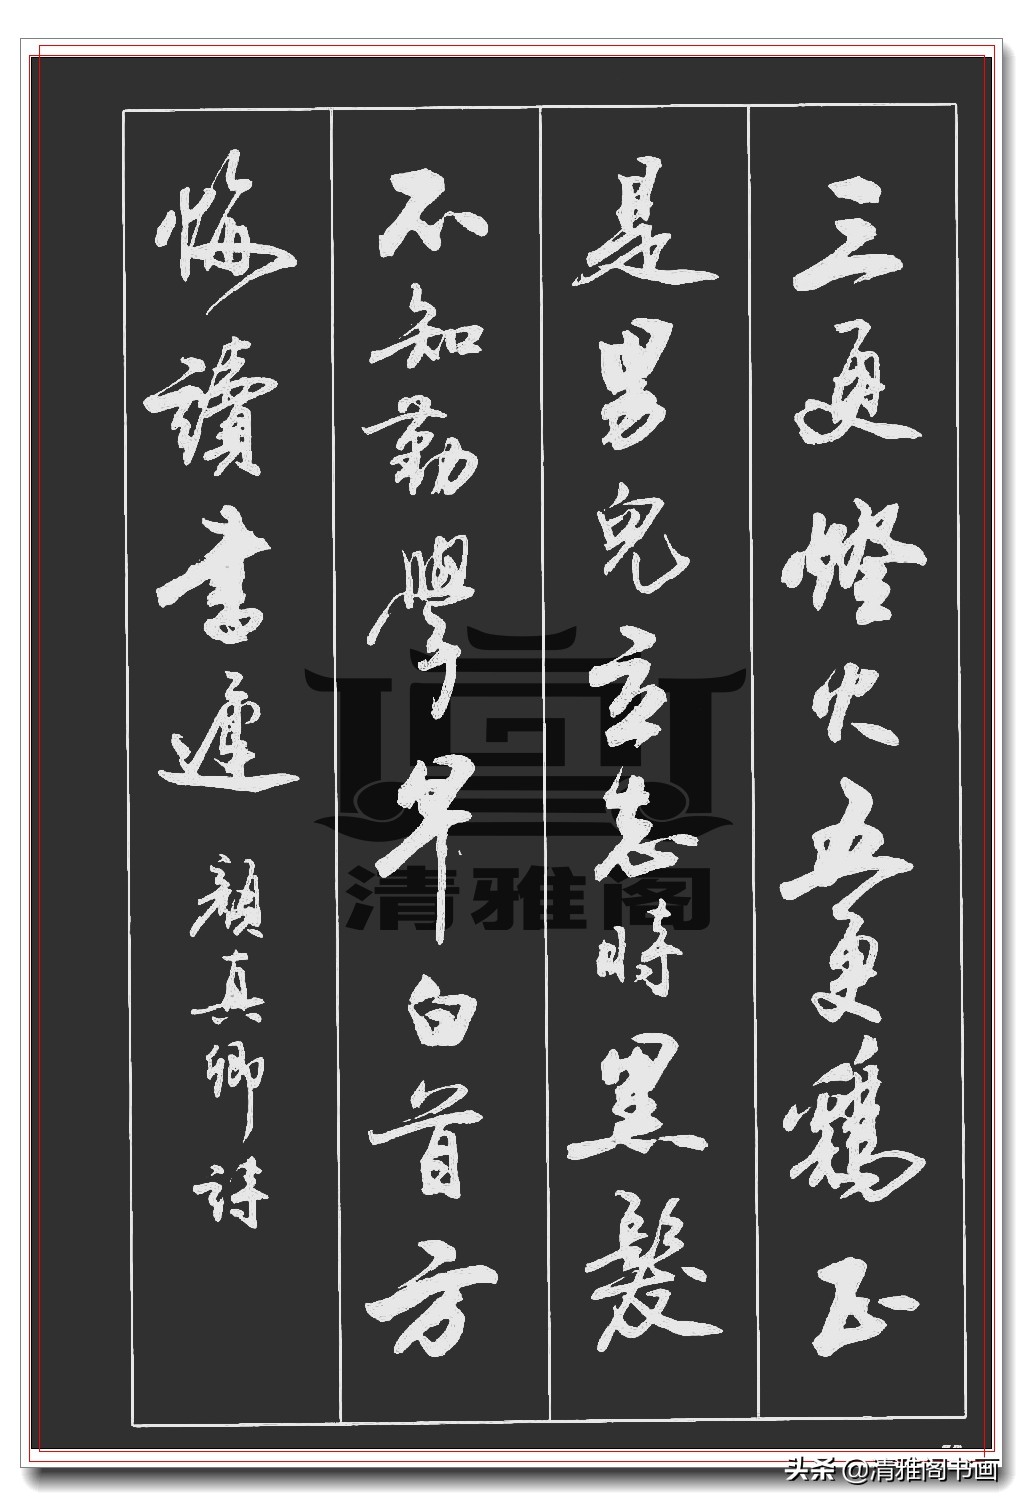 三更燈火五更鷄正
是男兒立志時黑髮
不知勤學早白首方
悔讀書遲
顏真卿詩
清雅阁
头条 @清雅阁书画